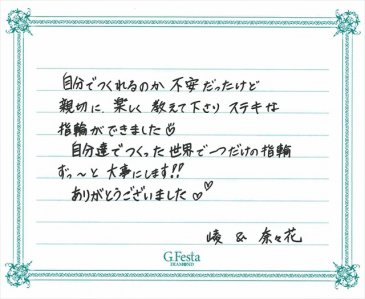 自分でつくれるのか 不安だったけど
親切に、楽しく 教えて下さり ステキな
指輪ができました♡
自分達でつくった世界で一つだけの指輪
ずっ〜と 大事にします!!
ありがとうございました♡♡
崚 & 奈々花
G.Festa